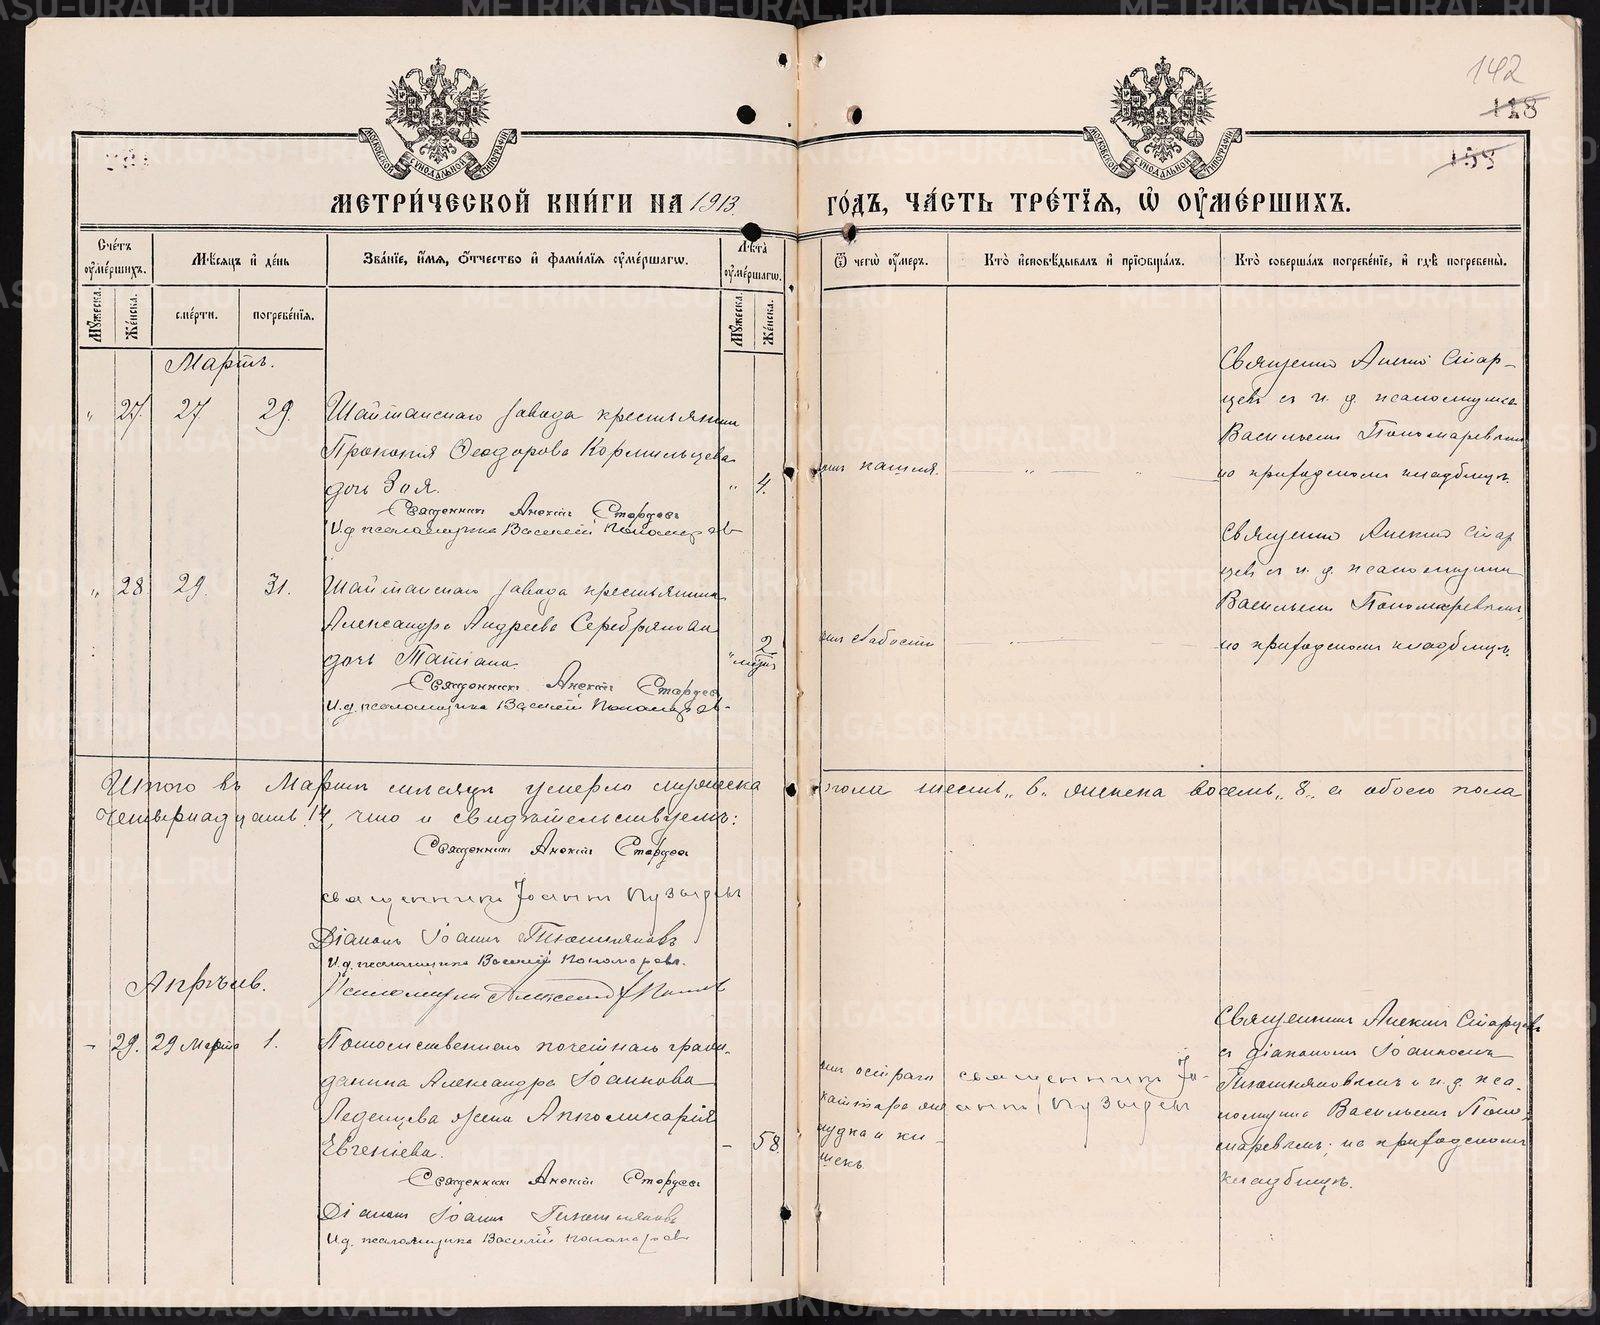 142
118
155
МОСКОВСКОЙ СѴНОДАЛЬНОЙ ТИПОГРАФІИ
МОСКОВСКОЙ СѴНОДАЛЬНОЙ ТИПОГРАФІИ
МЕТРИ́ЧЕСКОЙ КНИ́ГИ НА 1913.
ГО́ДЪ, ЧА́СТЬ ТРЕ́ТІѦ, Ѡ҆ ОУ҆МЕ́РШИХЪ.
Сче́тъ оу҆ме́ршихъ.
Мѣ́сяцъ и҆ де́нь
Зва́нїе, и҆́мѧ, ѻ҆́тчество и҆ фами́лїѧ оу҆ме́ршагѡ.
Лѣ́та оу҆ме́ршагѡ.
Ѿ чегѡ̀ оу҆́меръ.
Кто̀ и҆сповѣ́дывалъ и҆ прїѡбща́лъ.
Кто̀ соверша́лъ погребе́нїе, и҆ гдѣ̀ погребены̀.
Мꙋ́жеска.
Же́нска.
сме́рти.
погребе́нїѧ.
Мꙋ́жеска.
Же́нска.
Мартъ.
" 27. 27 29.
Шайтанскаго завода крестьянина
Прокопія Ѳеодорова Кормильцева
дочь Зоя.
" 4.
Священникъ Алексій Старцевъ
И.д. псаломщика Василій Пономаревъ
кашля.
Священник Алексій Стар-
цевъ съ и. д. псаломщика
Васильемъ Пономаревымъ,
на приходскомъ кладбищѣ.
" 28 29. 31.
Шайтанскаго завода крестьянина
Александра Андреева Серебрякова
дочь Татіана
" 2 мѣс.
Священникъ Алексій Старцевъ
И.д. псаломщика Василій Пономаревъ
слабости
Священник Алексій Стар
цевъ съ и. д. псаломщика
Васильемъ Пономаревымъ,
на приходскомъ кладбищѣ.
Итого въ Мартѣ мѣсяцѣ умерло мужеска пола шесть „6„ женска восемь „8„ а обоего пола
четырнадцать 14, что и свидѣтельствуемъ:
Священникъ Алексій Старцевъ
священникъ Іоаннъ Пузыревъ
Діаконъ Іоаннъ Тюшняковъ
И.д. псаломщика Василій Пономаревъ.
Псаломщикъ Алексей
Апрѣль.
- 29. 29 Марта 1.
Потомственнаго почетнаго граж-
данина Александра Іоаннова
Леденцева жена Апполинарія
Евгеніева.
- 58.
Священникъ Алексій Старцевъ
Діаконъ Іоаннъ Тюшняковъ
И.д. псаломщика Василій Пономаревъ
остраго
катарра же
лудка и ки-
шекъ.
священникъ Іо-
аннъ Пузыревъ
Священникъ Алексій Старцевъ
съ діакономъ Іоанномъ
Тюшняковымъ и и. д. пса-
ломщика Васильемъ Поно-
маревымъ, на приходскомъ
кладбищѣ.
METRIKI.GASO-URAL.RU